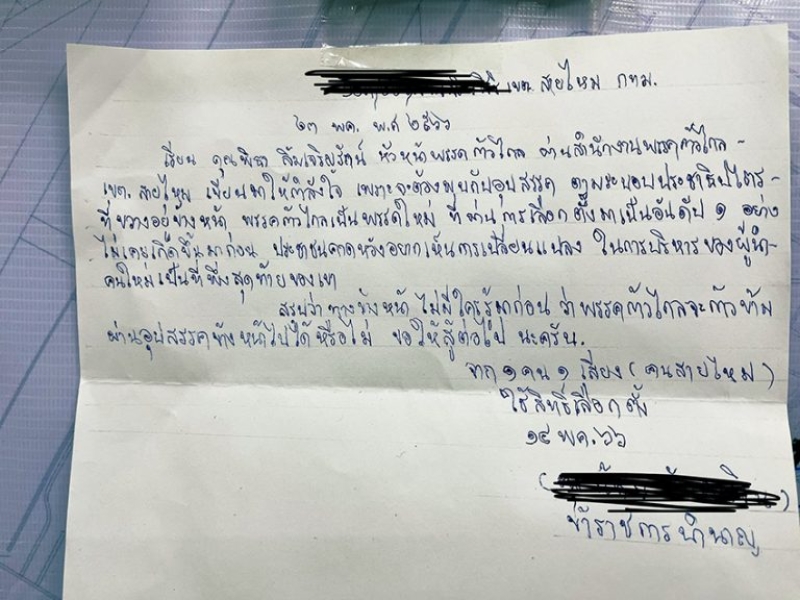 เขต สายไหม กทม.
๒๓ พค. พ.ศ ๒๕๖๖
เรียน คุณพิธา ลิ้มเจริญรัตน์ หัวหน้าพรรคก้าวไกล ผ่านสำนักงานพรรคก้าวไกล-
เขต สายไหม เขียนมาให้กำลังใจ เพราะจะต้องพบกับอุปสรรค ตามระบอบประชาธิปไตย-
ที่ขวางอยู่ข้างหน้า พรรคก้าวไกลเป็นพรรคใหม่ ที่ผ่านการเลือกตั้งมาเป็นอันดับ ๑ อย่าง
ไม่เคยเกิดขึ้นมาก่อน ประชาชนคาดหวังอยากเห็นการเปลี่ยนแปลง ในการบริหารของผู้นำ-
คนใหม่เป็นที่พึ่งสุดท้ายของเขา
สรุปว่าทางข้างหน้า ไม่มีใครรู้มาก่อน ว่าพรรคก้าวไกลจะก้าวข้าม
ผ่านอุปสรรคข้างหน้าไปได้หรือไม่ ขอให้สู้ต่อไป นะครับ.
จาก ๑ คน ๑ เสียง (คนสายไหม)
ใช้สิทธิ์เลือกตั้ง
๑๔ พค. ๖๖
( )
ข้าราชการบำนาญ